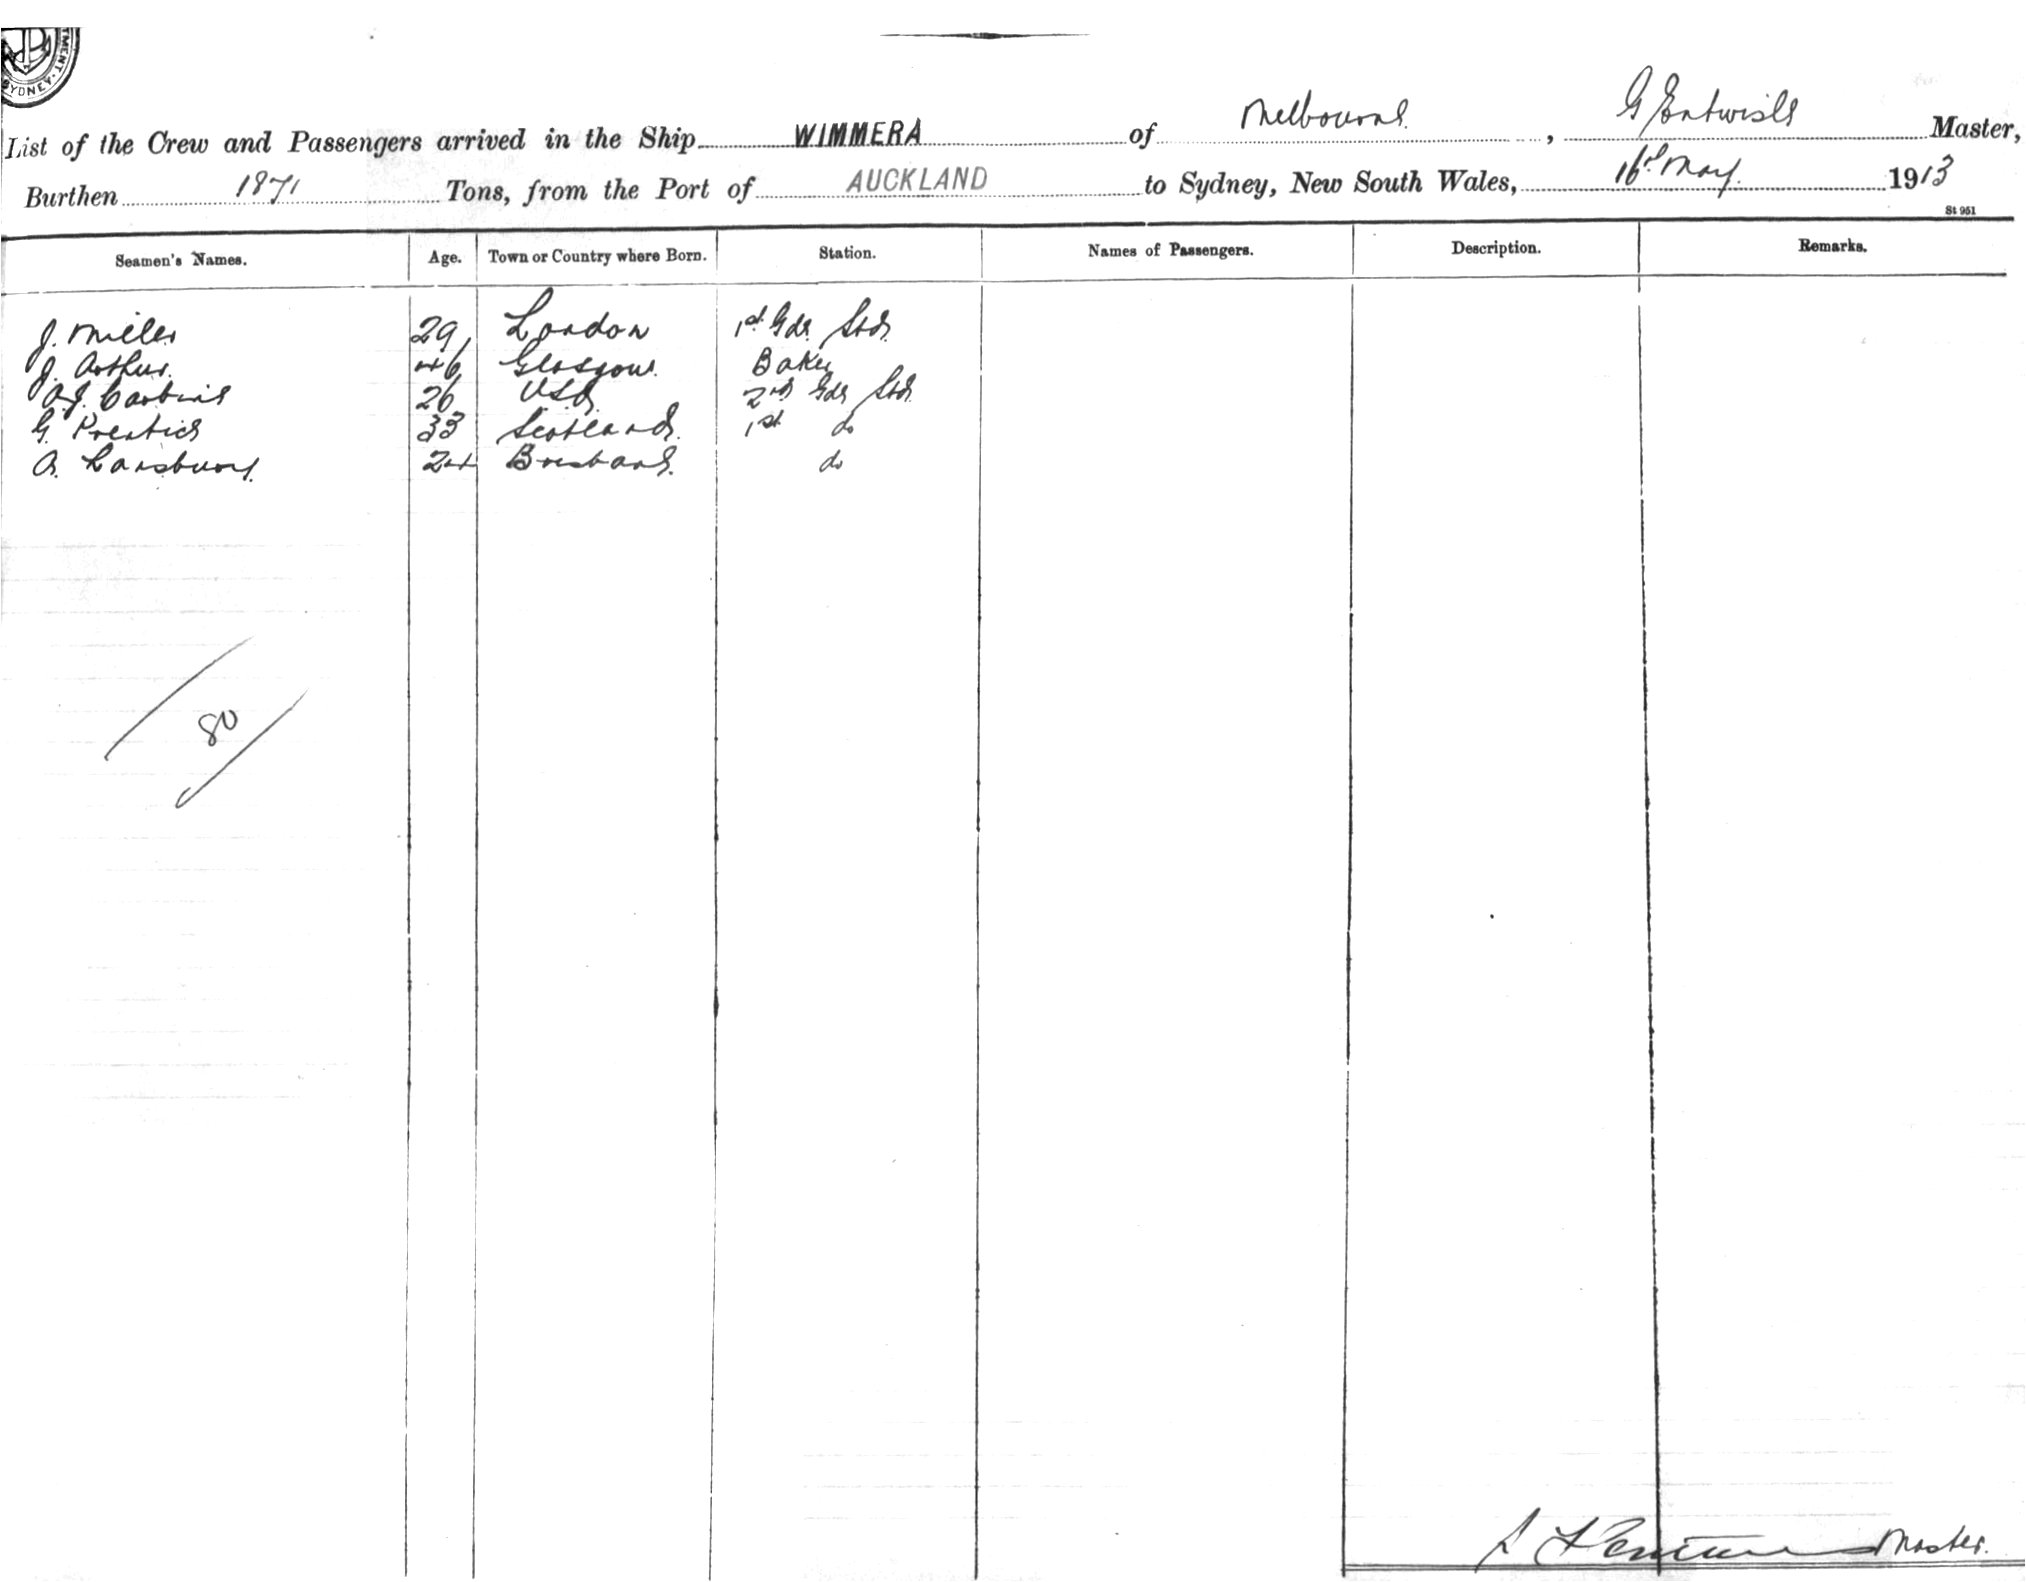 TMENT. SYDNEY
List of the Crew and Passengers arrived in the Ship WIMMERA of Melbourne, G Entwisle Master,
Burthen 1871 Tons, from the Port of AUCKLAND to Sydney, New South Wales, 16th May 1913
St 951
Seamen's Names. Age. Town or Country where Born. Station. Names of Passengers. Description. Remarks.
J. Miller 29 London 1st Gde Std.
J. Arthur. 46 Glasgow. Baker
A.J. 26 USA 2nd Gde Std.
G. Prentice 33 Scotland. 1st do
A. Lansbury. 24 Brisbane. do
80
Master.